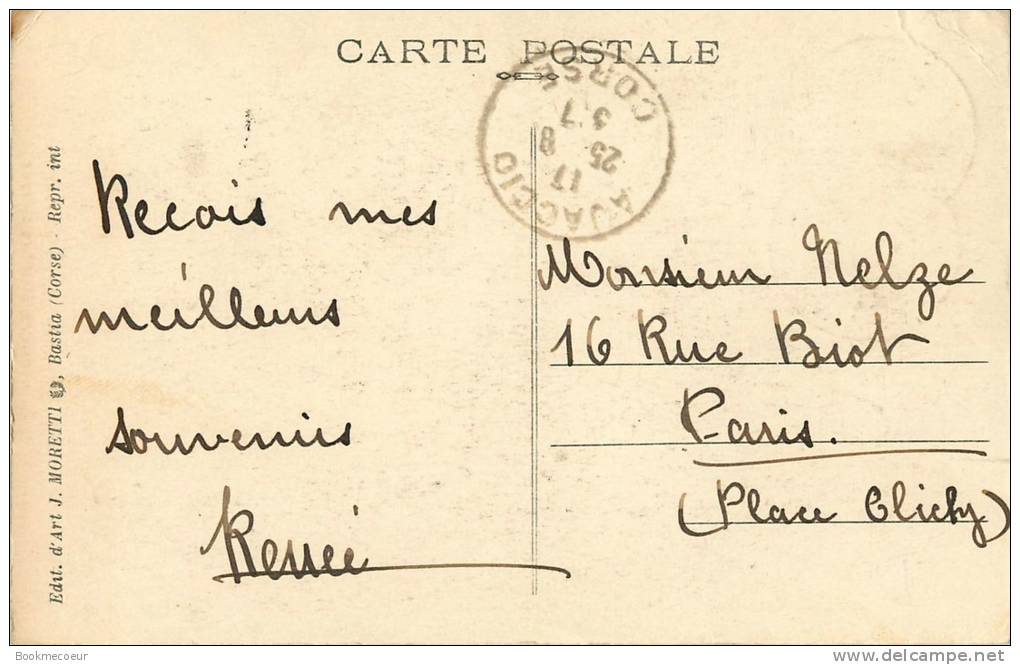 CARTE POSTALE
AJACCIO
CORSE
17
25 8
Recois mes
meilleurs
souvenirs
Renée
Monsieur Nelze
16 Rue Biot
Paris.
(Place Clichy)
Edit. d'Art J. MORETTI, Bastia (Corse) - Repr. int
Bookmecoeur
www.delcampe.net